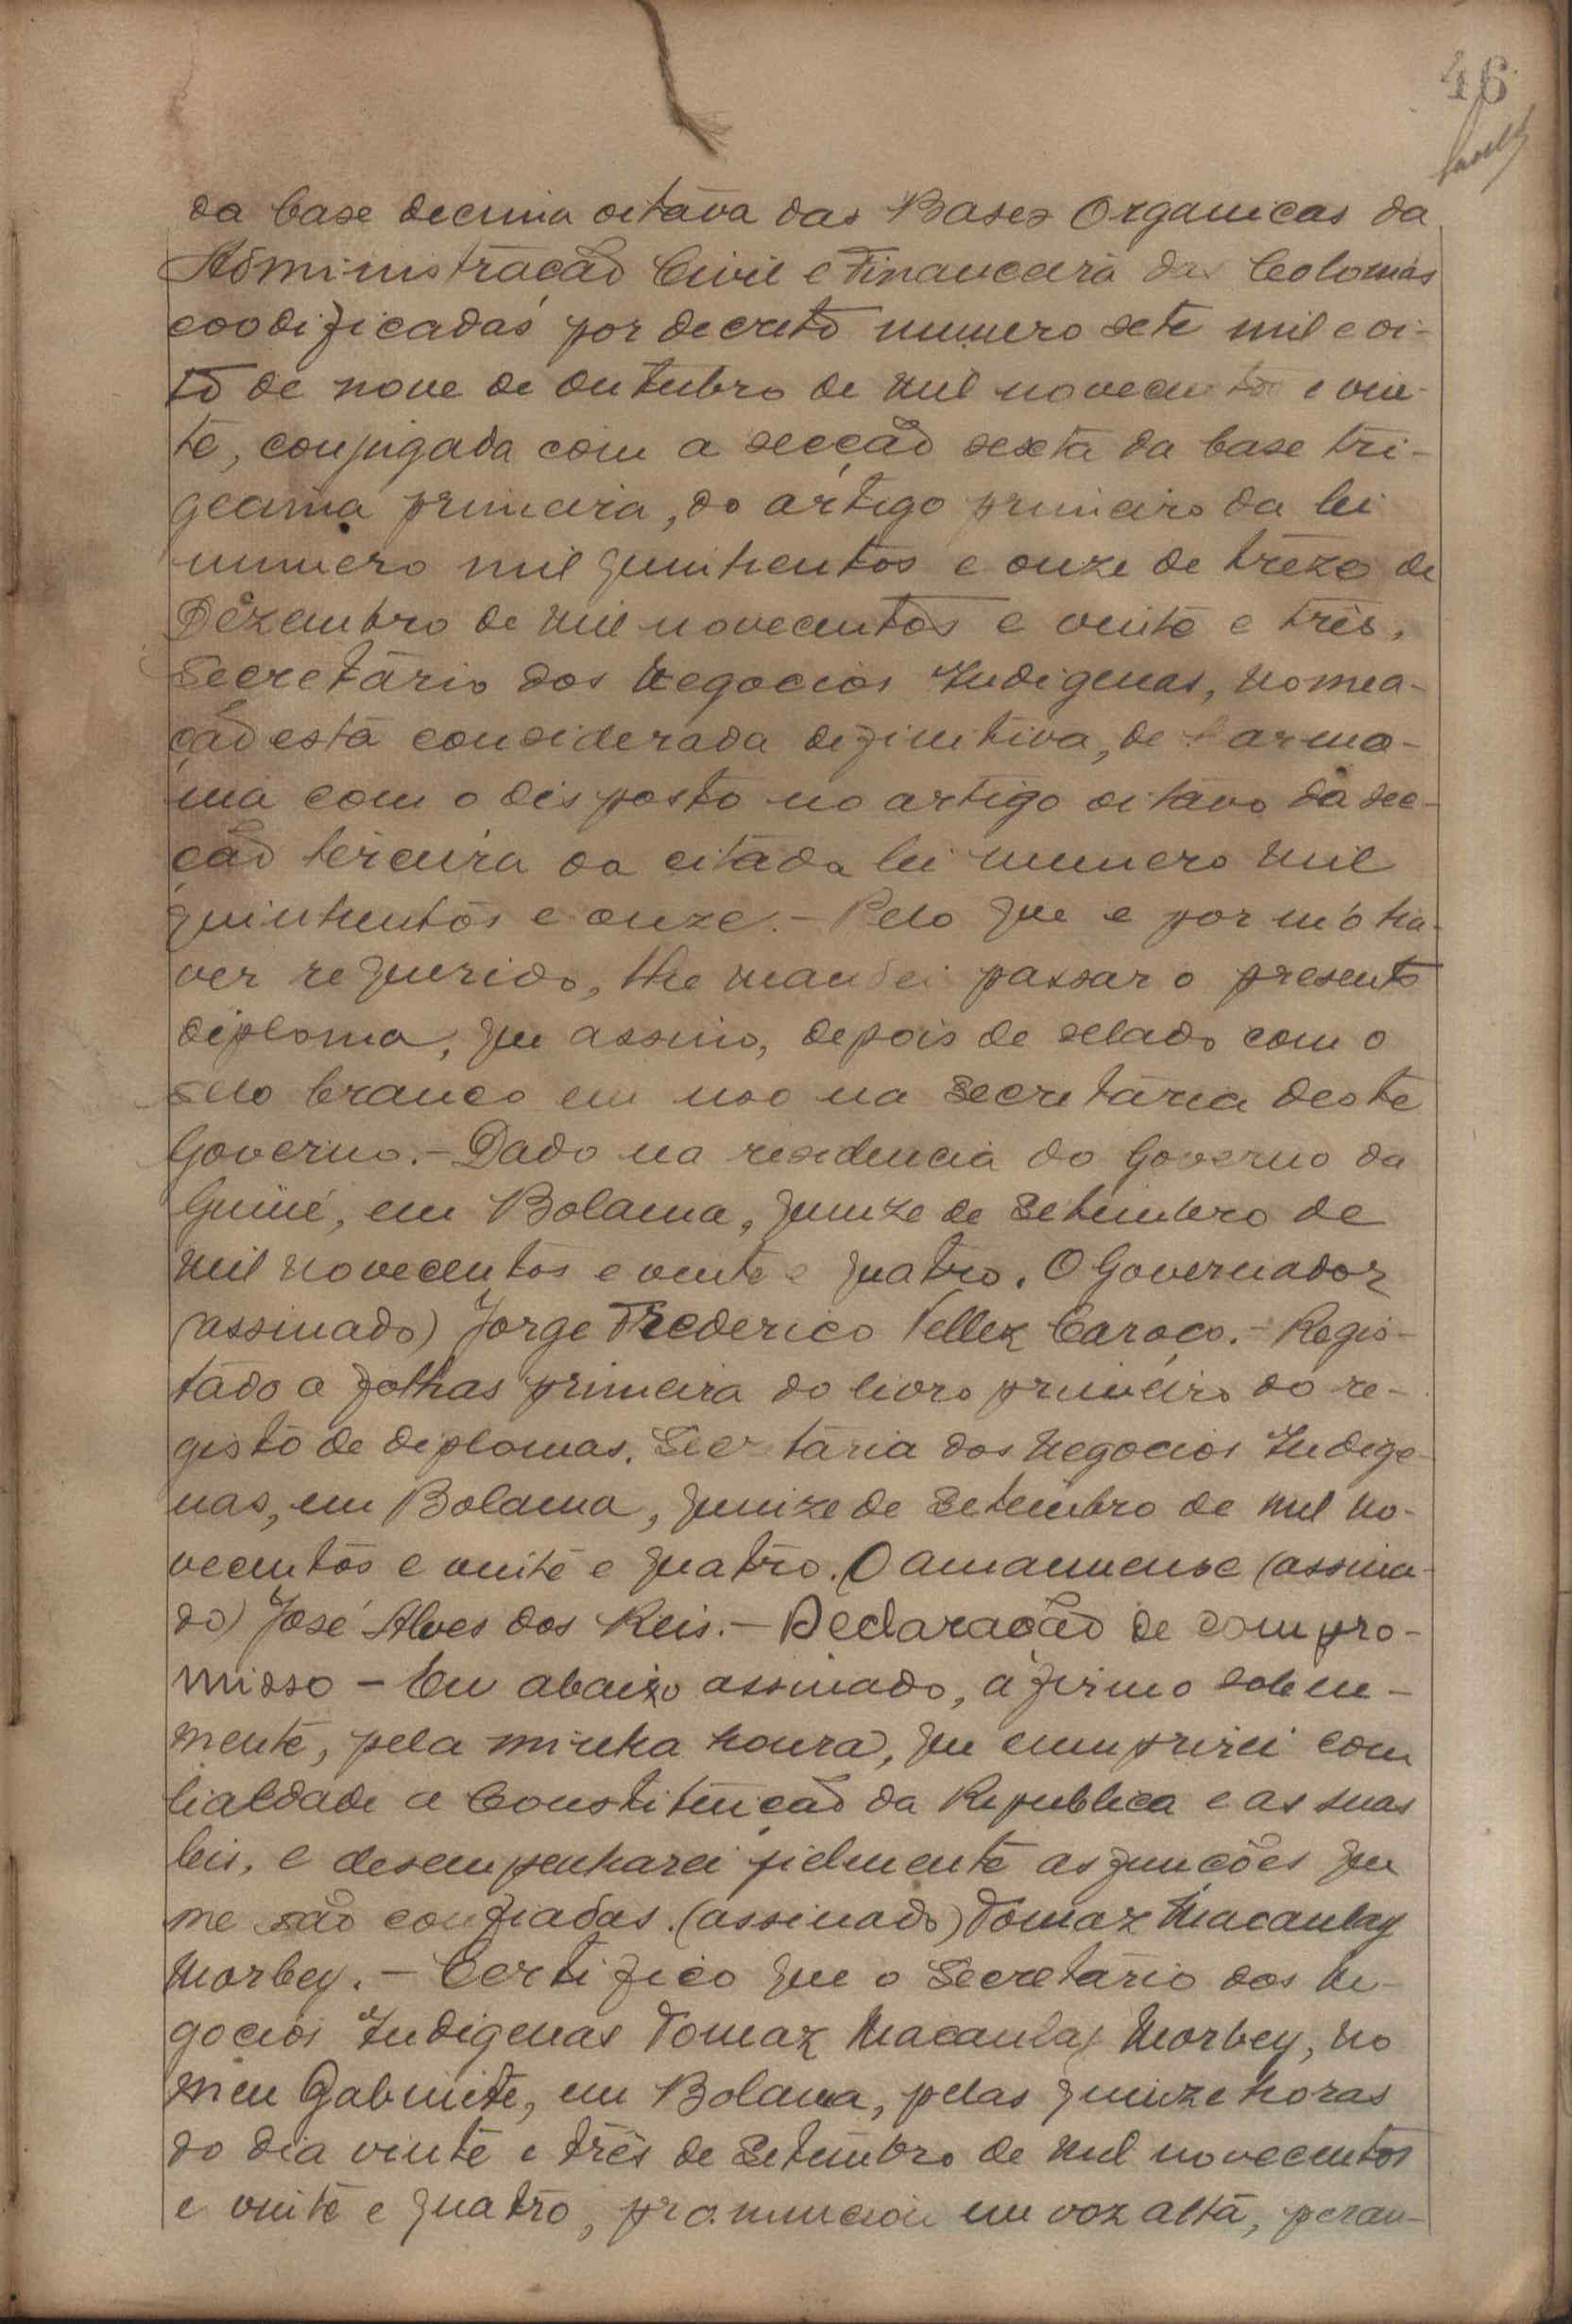 46
da base decima oitava das Bases Organicas da
Administração Civil e Financeira das Colonias
coodificadas por decreto numero sete mil e oi-
to de nove de Outubro de mil novecentos e vin-
te, conjugada com a secção sexta da base tri-
gesima primeira, do artigo primeiro da lei
numero mil quinhentos e onze de treze de
Dezembro de mil novecentos e vinte e três,
Secretário dos Negocios Indigenas, nomea-
ção esta considerada definitiva, de harmo-
nia com o disposto no artigo oitavo da sec-
ção terceira da citada lei numero mil
quinhentos e onze. - Pelo que e por m'o ha-
ver requerido, lhe mandei passar o presente
diploma, que assino, depois de selado com o
selo branco em uso na Secretária deste
Governo. - Dado na residencia do Governo da
Guiné, em Bolama, quinze de Setembro de
mil novecentos e vinte e quatro. O Governador
(assinado) Jorge Frederico Vellez Caroço. - Regis-
tado a folhas primeira do livro primeiro do re-
gisto de diplomas. Secretária dos Negocios Indige-
nas, em Bolama, quinze de Setembro de mil no-
vecentos e vinte e quatro. O amanuense (assina-
do) José Alves dos Reis. - Declaração de compro-
misso - Eu abaixo assinado, afirmo solene-
mente, pela minha honra, que cumprirei com
lialdade a Constituição da Republica e as suas
leis, e desempenharei fielmente as funções que
me são confiadas. (assinado) Tomaz Macaulay
Morbey. - Certifico que o Secretário dos Ne-
gocios Indigenas Tomaz Macaulay Morbey, no
meu Gabinete, em Bolama, pelas quinze horas
do dia vinte e três de Setembro de mil novecentos
e vinte e quatro, pronunciou em voz alta, peran-